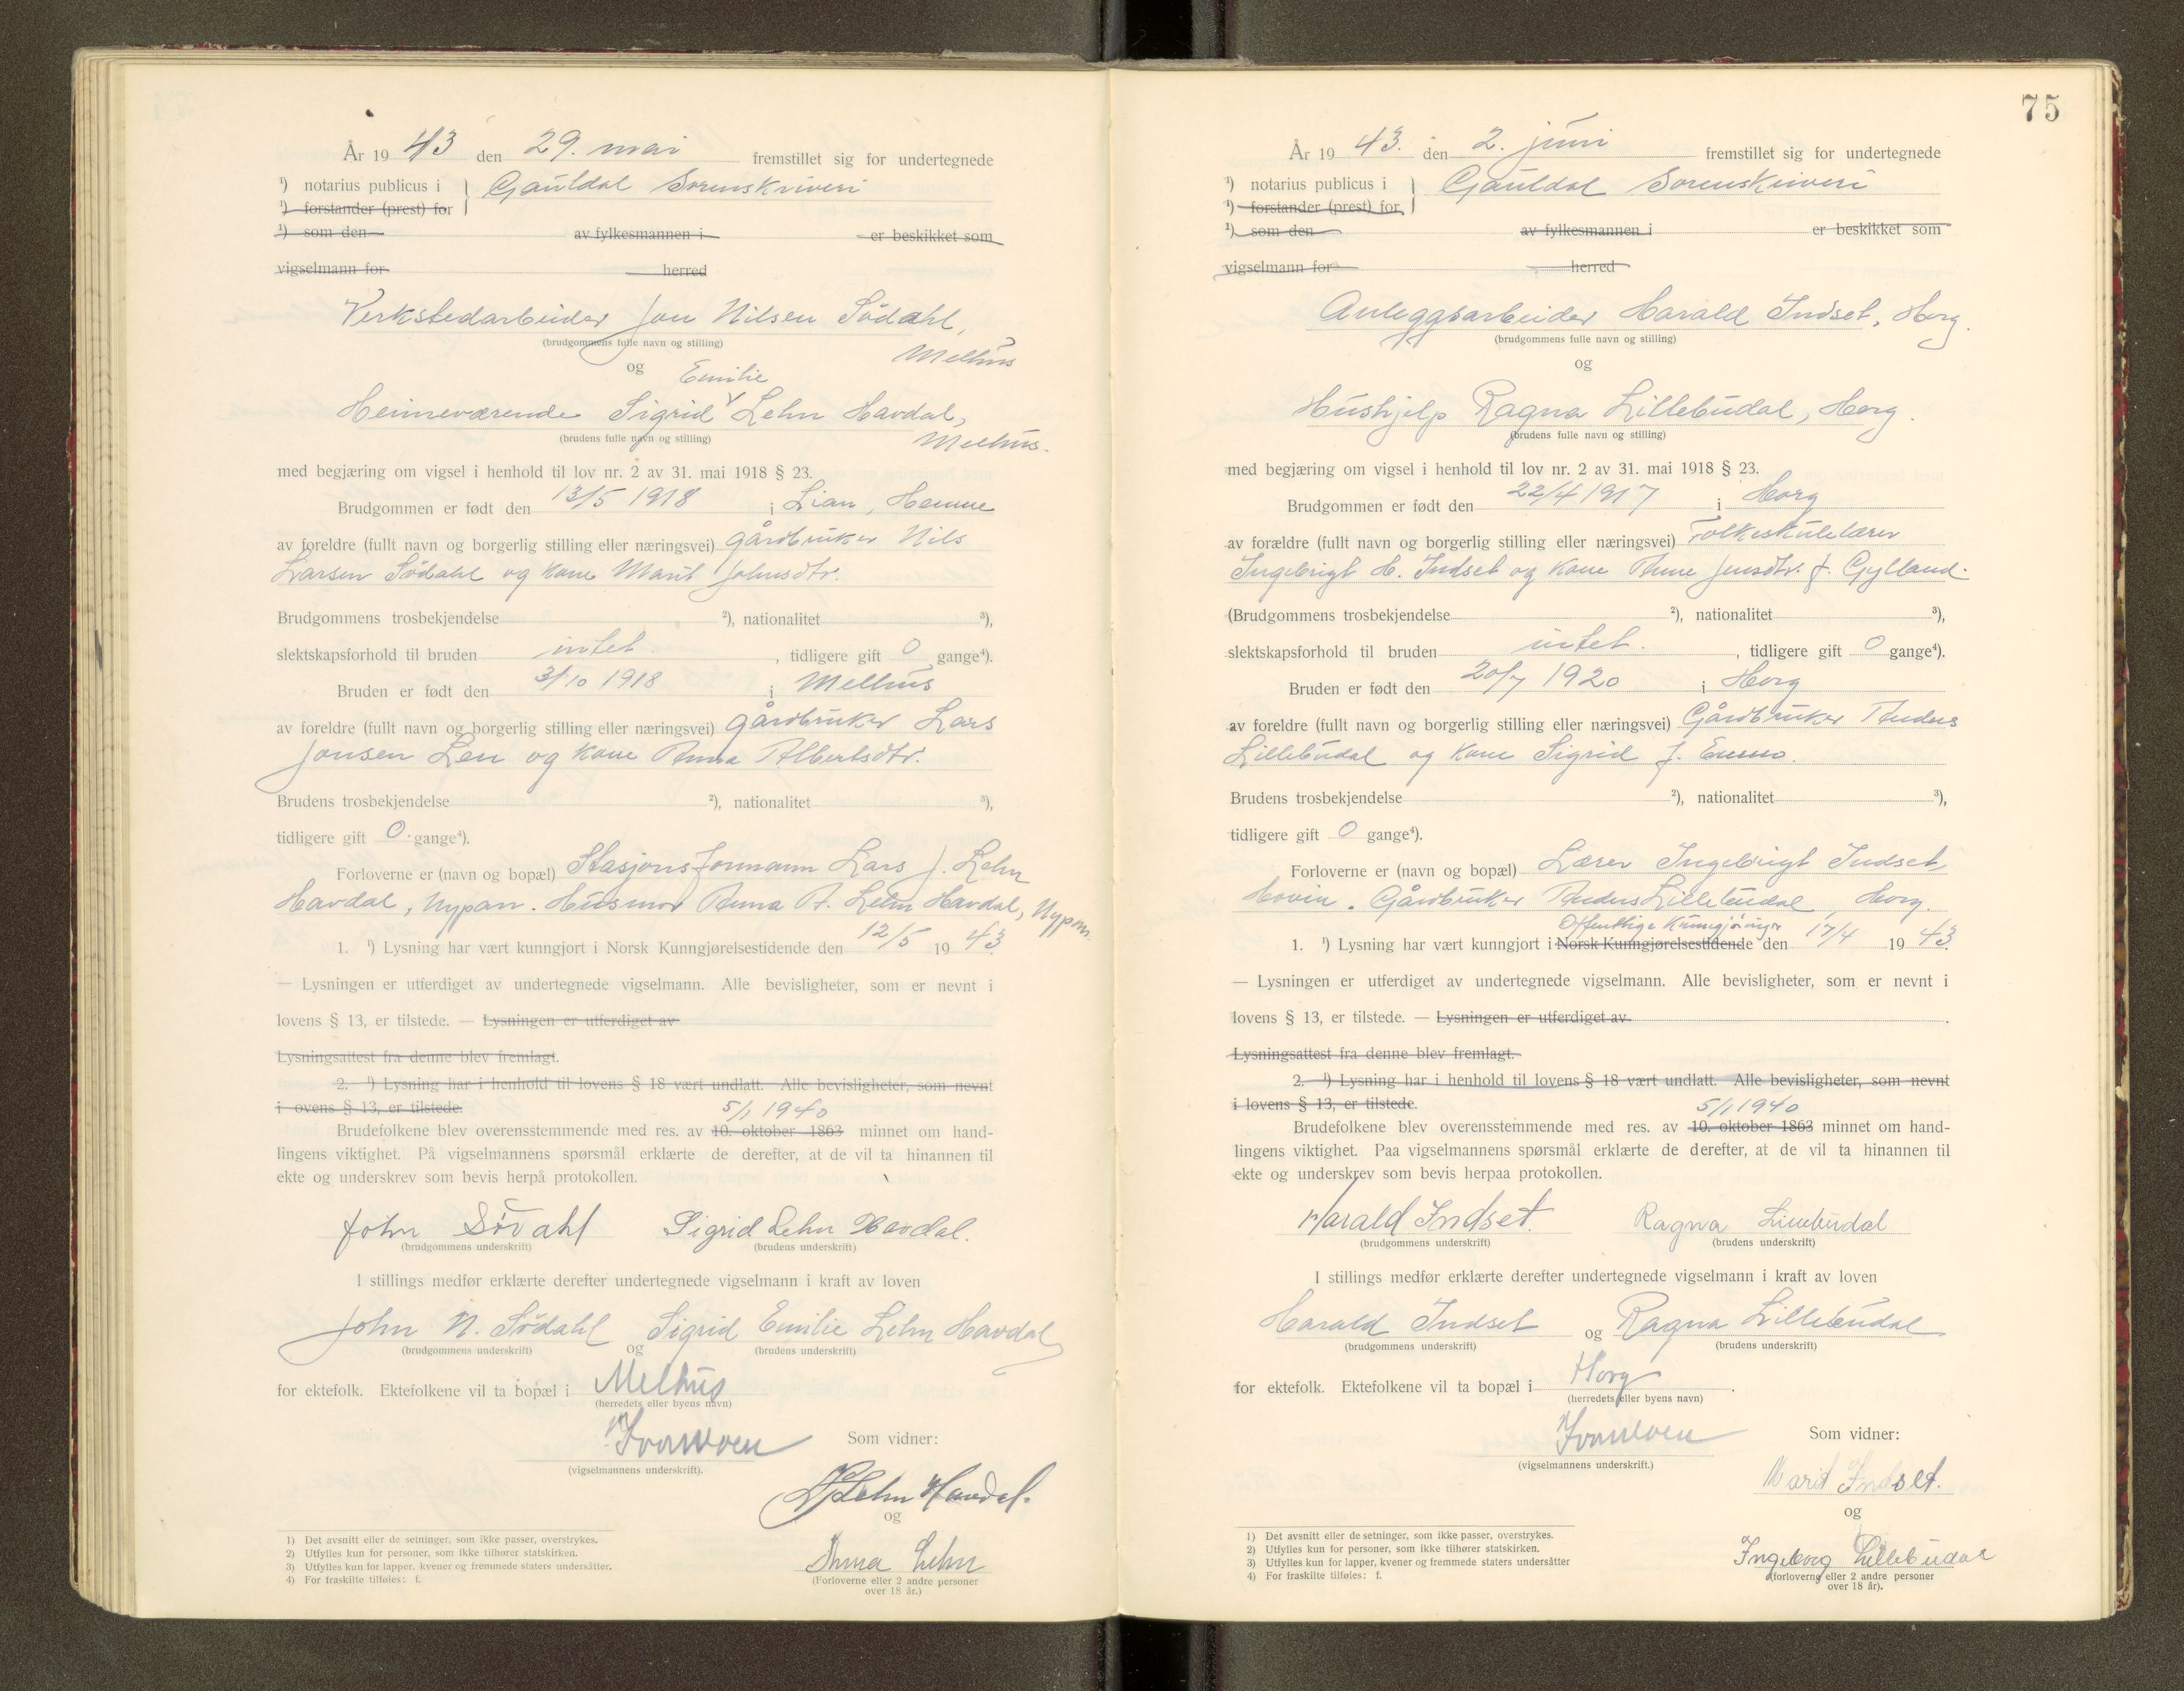 År 19 43 den 29. mai fremstillet sig for undertegnede
¹) notarius publicus i } Gauldal Sorenskriveri
¹) forstander (prest) for
¹) som den av fylkesmannen i er beskikket som
vigselmann for herred
Verkstedarbeider Jon Nilsen Södahl,
(brudgommens fulle navn og stilling)
Melhus
og
Emilie
Heimeværende Sigrid Lehn Havdal,
(brudens fulle navn og stilling)
Melhus.
med begjæring om vigsel i henhold til lov nr. 2 av 31. mai 1918 § 23.
Brudgommen er født den 13/5 1918 i Lian, Hemne
av foreldre (fullt navn og borgerlig stilling eller næringsvei) gårdbruker Nils
Larsen Södahl og kone Marit Johnsdtr.
Brudgommens trosbekjendelse ²), nationalitet ³),
slektskapsforhold til bruden intet , tidligere gift 0 gange⁴).
Bruden er født den 3/10 1918 i Melhus
av foreldre (fullt navn og borgerlig stilling eller næringsvei) gårdbruker Lars
Jonsen Len og kone Anna Albertsdtr.
Brudens trosbekjendelse ²), nationalitet ³),
tidligere gift 0 gange⁴).
Forloverne er (navn og bopæl) Stasjonsformann Lars J. Lehn
Havdal, Nypan. Husmor Anna A. Lehn Havdal, Nypan.
1. ¹) Lysning har vært kunngjort i Norsk Kunngjørelsestidende den 12/5 19 43
— Lysningen er utferdiget av undertegnede vigselmann. Alle bevisligheter, som er nevnt i
lovens § 13, er tilstede. — Lysningen er utferdiget av
Lysningsattest fra denne blev fremlagt.
2. ¹) Lysning har i henhold til lovens § 18 vært undlatt. Alle bevisligheter, som nevnt
i ovens § 13, er tilstede.
5/1 1940
Brudefolkene blev overensstemmende med res. av 10. oktober 1863 minnet om hand-
lingens viktighet. På vigselmannens spørsmål erklærte de derefter, at de vil ta hinannen til
ekte og underskrev som bevis herpå protokollen.
John Södahl Sigrid Lehn Havdal.
(brudgommens underskrift) (brudens underskrift)
I stillings medfør erklærte derefter undertegnede vigselmann i kraft av loven
John N. Södahl og Sigrid Emilie Lehn Havdal
(brudgommens underskrift) (brudens underskrift)
for ektefolk. Ektefolkene vil ta bopæl i Melhus
(herredets eller byens navn)
Som vidner:
(vigselmannens underskrift).
Lehn Havdal.
og
Anna Lehn
(Forloverne eller 2 andre personer
over 18 år.)
1) Det avsnitt eller de setninger, som ikke passer, overstrykes.
2) Utfylles kun for personer, som ikke tilhører statskirken.
3) Utfylles kun for lapper, kvener og fremmede staters undersåtter.
4) For fraskilte tilføies: f.
75
År 19 43. den 2. juni fremstillet sig for undertegnede
¹) notarius publicus i } Gauldal Sorenskriveri
¹) forstander (prest) for
¹) som den av fylkesmannen i er beskikket som
vigselmann for herred
Anleggsarbeider Harald Indset, Horg.
(brudgommens fulle navn og stilling)
og
Hushjelp Ragna Lillebudal, Horg.
(brudens fulle navn og stilling)
med begjæring om vigsel i henhold til lov nr. 2 av 31. mai 1918 § 23.
Brudgommen er født den 22/4 1917 i Horg
av forældre (fullt navn og borgerlig stilling eller næringsvei) Folkeskulelærer
Ingebrigt H. Indset og kone Anne Jensdtr. f. Gylland.
(Brudgommens trosbekjendelse ²), nationalitet ³),
slektskapsforhold til bruden intet. , tidligere gift 0 gange⁴).
Bruden er født den 20/7 1920 i Horg
av foreldre (fullt navn og borgerlig stilling eller næringsvei) Gårdbruker Anders
Lillebudal og kone Sigrid f. Enmo.
Brudens trosbekjendelse ²), nationalitet ³),
tidligere gift 0 gange⁴).
Forloverne er (navn og bopæl) Lærer Ingebrigt Indset,
Hovin. Gårdbruker Anders Lillebudal, Horg.
Offentlige Kunngjøringer
1. ¹) Lysning har vært kunngjort i Norsk Kunngjørelsestidende den 17/4 19 43.
— Lysningen er utferdiget av undertegnede vigselmann. Alle bevisligheter, som er nevnt i
lovens § 13, er tilstede. — Lysningen er utferdiget av .
Lysningsattest fra denne blev fremlagt.
2. ¹) Lysning har i henhold til lovens § 18 vært undlatt. Alle bevisligheter, som nevnt
i lovens § 13, er tilstede.
5/1 1940
Brudefolkene blev overensstemmende med res. av 10. oktober 1863 minnet om hand-
lingens viktighet. Paa vigselmannens spørsmål erklærte de derefter, at de vil ta hinannen til
ekte og underskrev som bevis herpaa protokollen.
Harald Indset. Ragna Lillebudal
(brudgommens underskrift) (brudens underskrift)
I stillings medfør erklærte derefter undertegnede vigselmann i kraft av loven
Harald Indset og Ragna Lillebudal
(brudgommens underskrift) (brudens underskrift)
for ektefolk. Ektefolkene vil ta bopæl i Horg .
(herredets eller byens navn)
Som vidner:
(vigselmannens underskrift.)
Marit Indset.
og
Ingeborg Lillebudal
(forloverne eller 2 andre personer
over 18 år).
1) Det avsnitt eller de setninger, som ikke passer, overstrykes.
2) Utfylles kun for personer, som ikke tilhører statskirken.
3) Utfylles kun for lapper, kvener og fremmede staters undersåtter
4) For fraskilte tilføies: f.